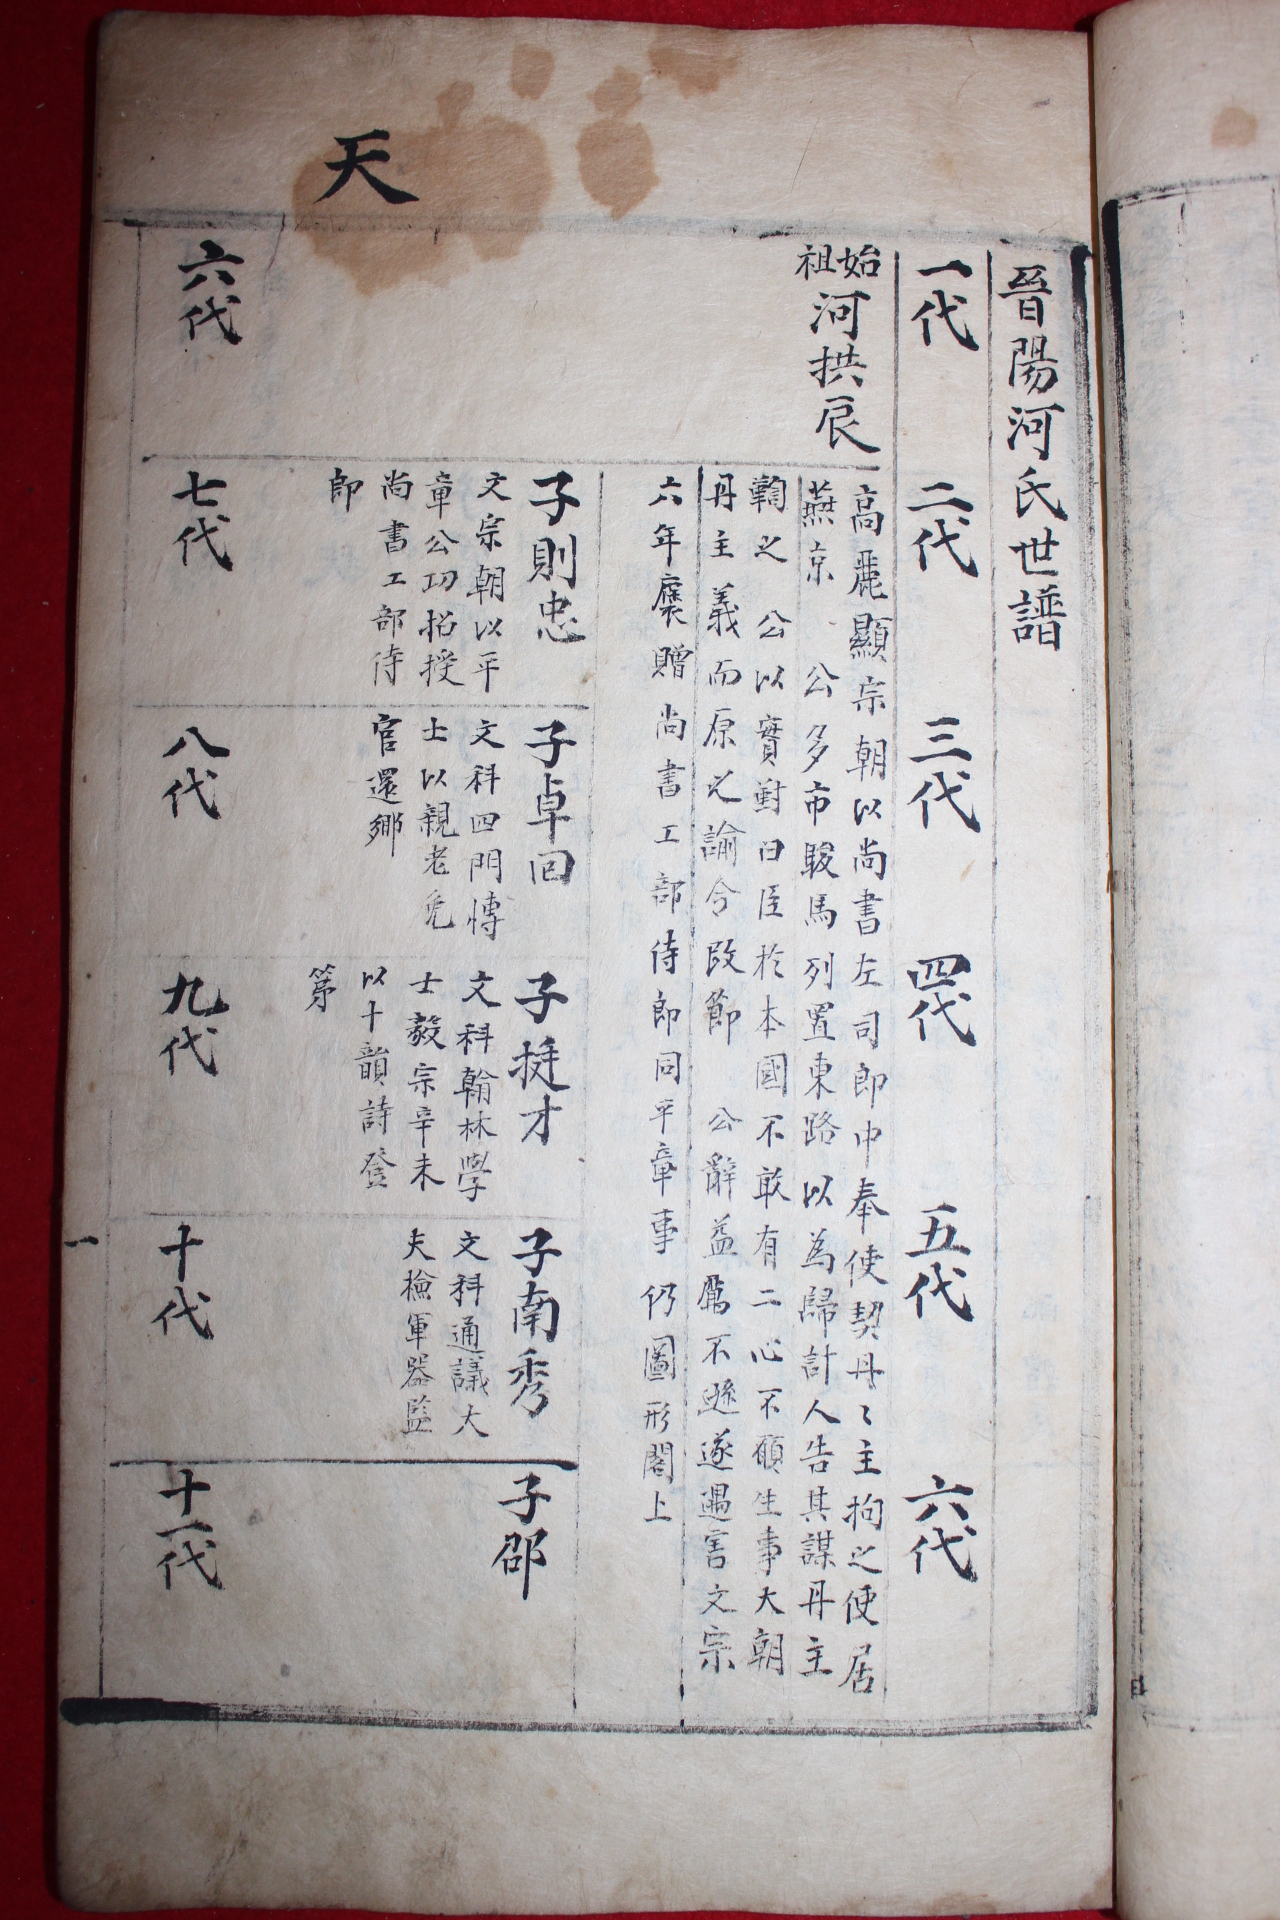 天
晉陽河氏世譜
一代 二代 三代 四代 五代 六代
始祖 河拱辰
高麗顯宗朝以尚書左司郎中奉使契丹〻主拘之使居
燕京 公多市駿馬列置東路以為歸計人告其謀丹主
鞫之 公以實對曰臣於本國不敢有二心不願生事大朝
丹主義而原之諭令改節 公辭益厲不遜遂遇害文宗
六年褒贈尚書工部侍郎同平章事仍圖形閣上
子則忠
文宗朝以平
章公功招授
尚書工部侍
郎
子卓回
文科四門愽
士以親老免
官還鄉
子挺才
文科翰林學
士毅宗辛未
以十韻詩登
第
子南秀
文科通議大
夫檢軍器監
子邵
六代 七代 八代 九代 十代 十一代
一